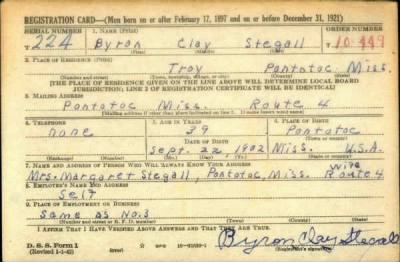 REGISTRATION CARD—(Men born on or after February 17, 1897 and on or before December 31, 1921)
SERIAL NUMBER 1. NAME (Print) ORDER NUMBER
T 224 Byron Clay Stegall 10,449
(First) (Middle) (Last)
2. PLACE OF RESIDENCE (Print)
Troy Pontotoc Miss.
(Number and street) (Town, township, village, or city) (County) (State)
[THE PLACE OF RESIDENCE GIVEN ON THE LINE ABOVE WILL DETERMINE LOCAL BOARD
JURISDICTION; LINE 2 OF REGISTRATION CERTIFICATE WILL BE IDENTICAL]
3. MAILING ADDRESS
Pontotoc Miss. Route 4
[Mailing address if other than place indicated on line 2. If same insert word same]
4. TELEPHONE 5. AGE IN YEARS 6. PLACE OF BIRTH
none 39 Pontotoc
DATE OF BIRTH (Town or county)
Sept. 22 1902 Miss. U.S.A.
(Exchange) (Number) (Mo.) (Day) (Yr.) (State or country)
7. NAME AND ADDRESS OF PERSON WHO WILL ALWAYS KNOW YOUR ADDRESS
wife
Mrs. Margaret Stegall, Pontotoc, Miss. Route 4
8. EMPLOYER'S NAME AND ADDRESS
Self
9. PLACE OF EMPLOYMENT OR BUSINESS
Same as No. 3
(Number and street or R. F. D. number) (Town) (County) (State)
I AFFIRM THAT I HAVE VERIFIED ABOVE ANSWERS AND THAT THEY ARE TRUE.
D. S. S. Form 1
(Revised 1-1-42) (over) Byron Clay Stegall
(Registrant's signature)